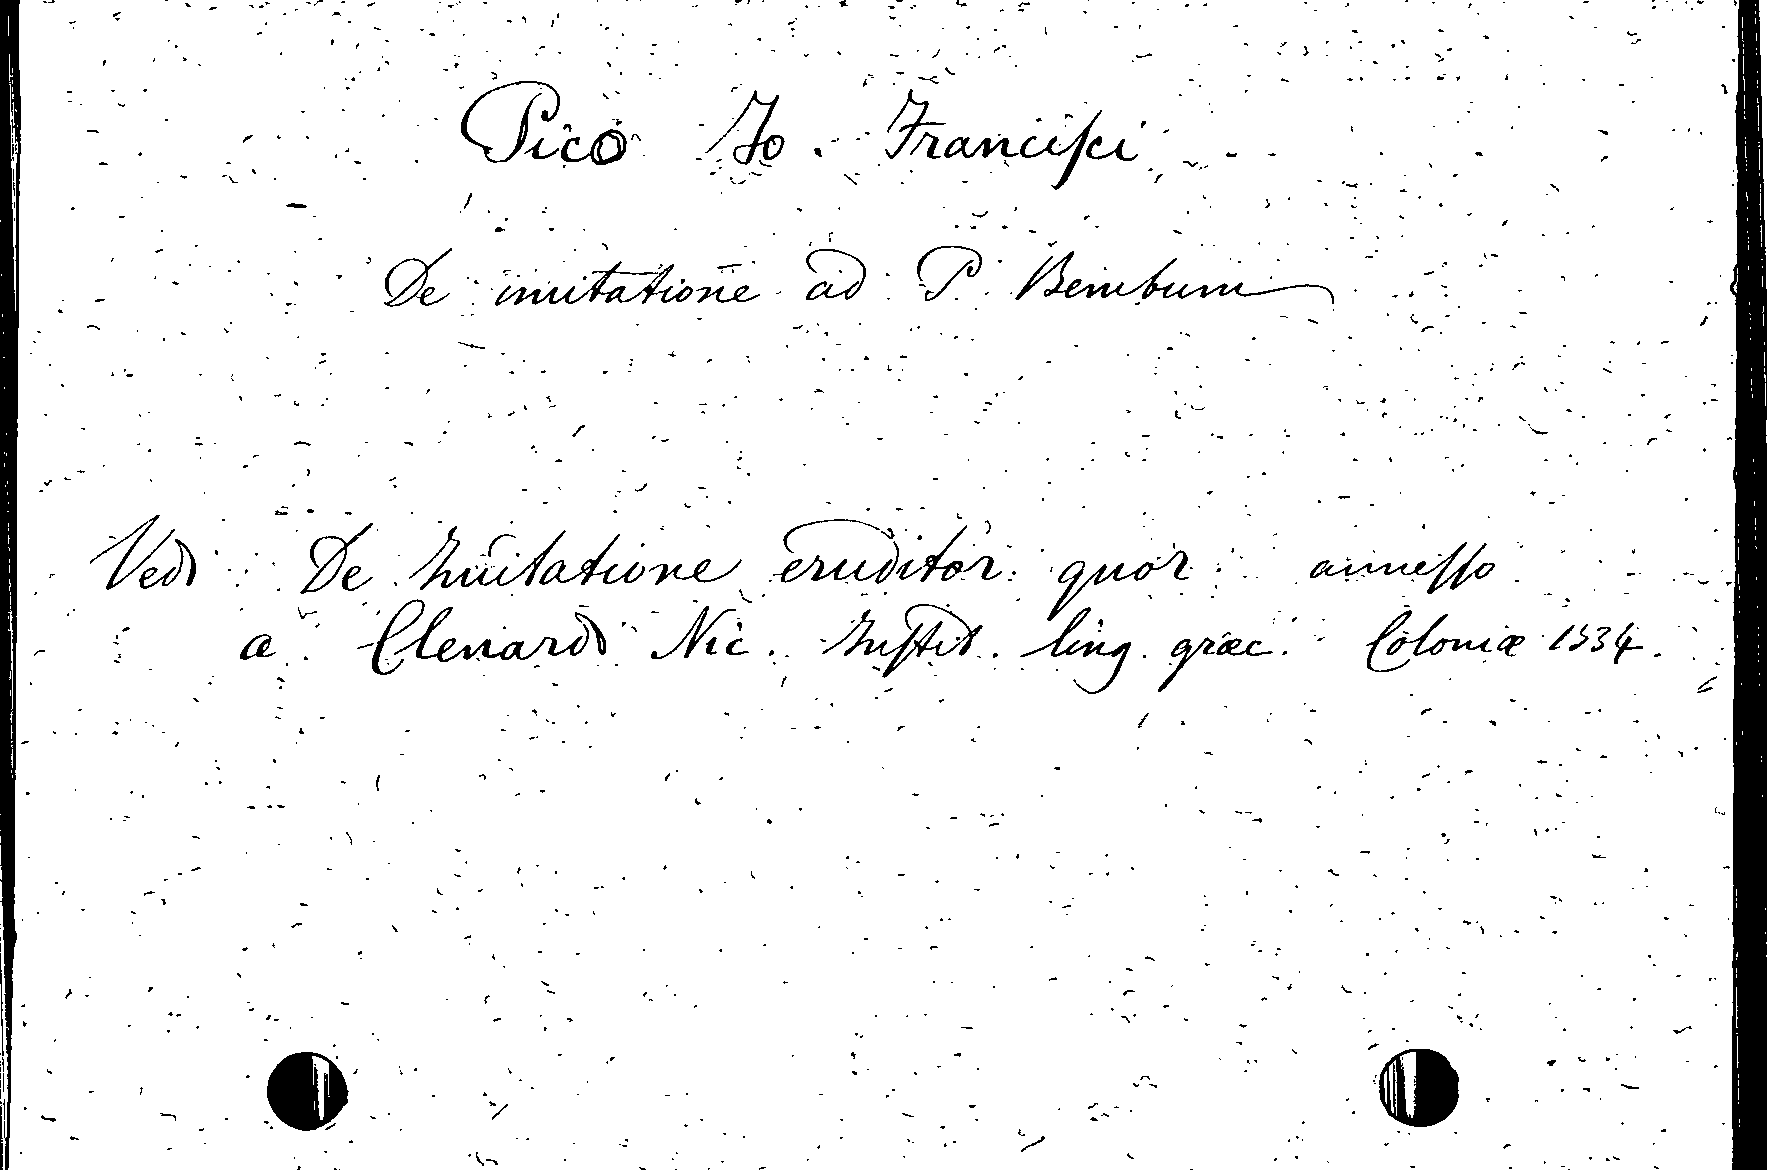 Pico Jo. Francisci
De imitatione ad P. Bembum
Vedi De Imitatione eruditor. quor. annesso
a Clenardi Nic. Instit. ling. græc. Coloniæ 1534.